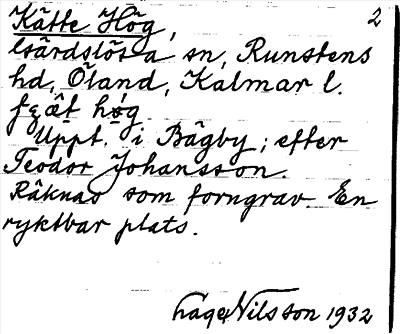 Kätte Hög, 2
Gärdslösa sn, Runstens
hd, Öland, Kalmar l.
høg
Uppt. i Bägby; efter
Teodor Johansson.
Räknas som forngrav. En
ryktbar plats.
Nilsson 1932